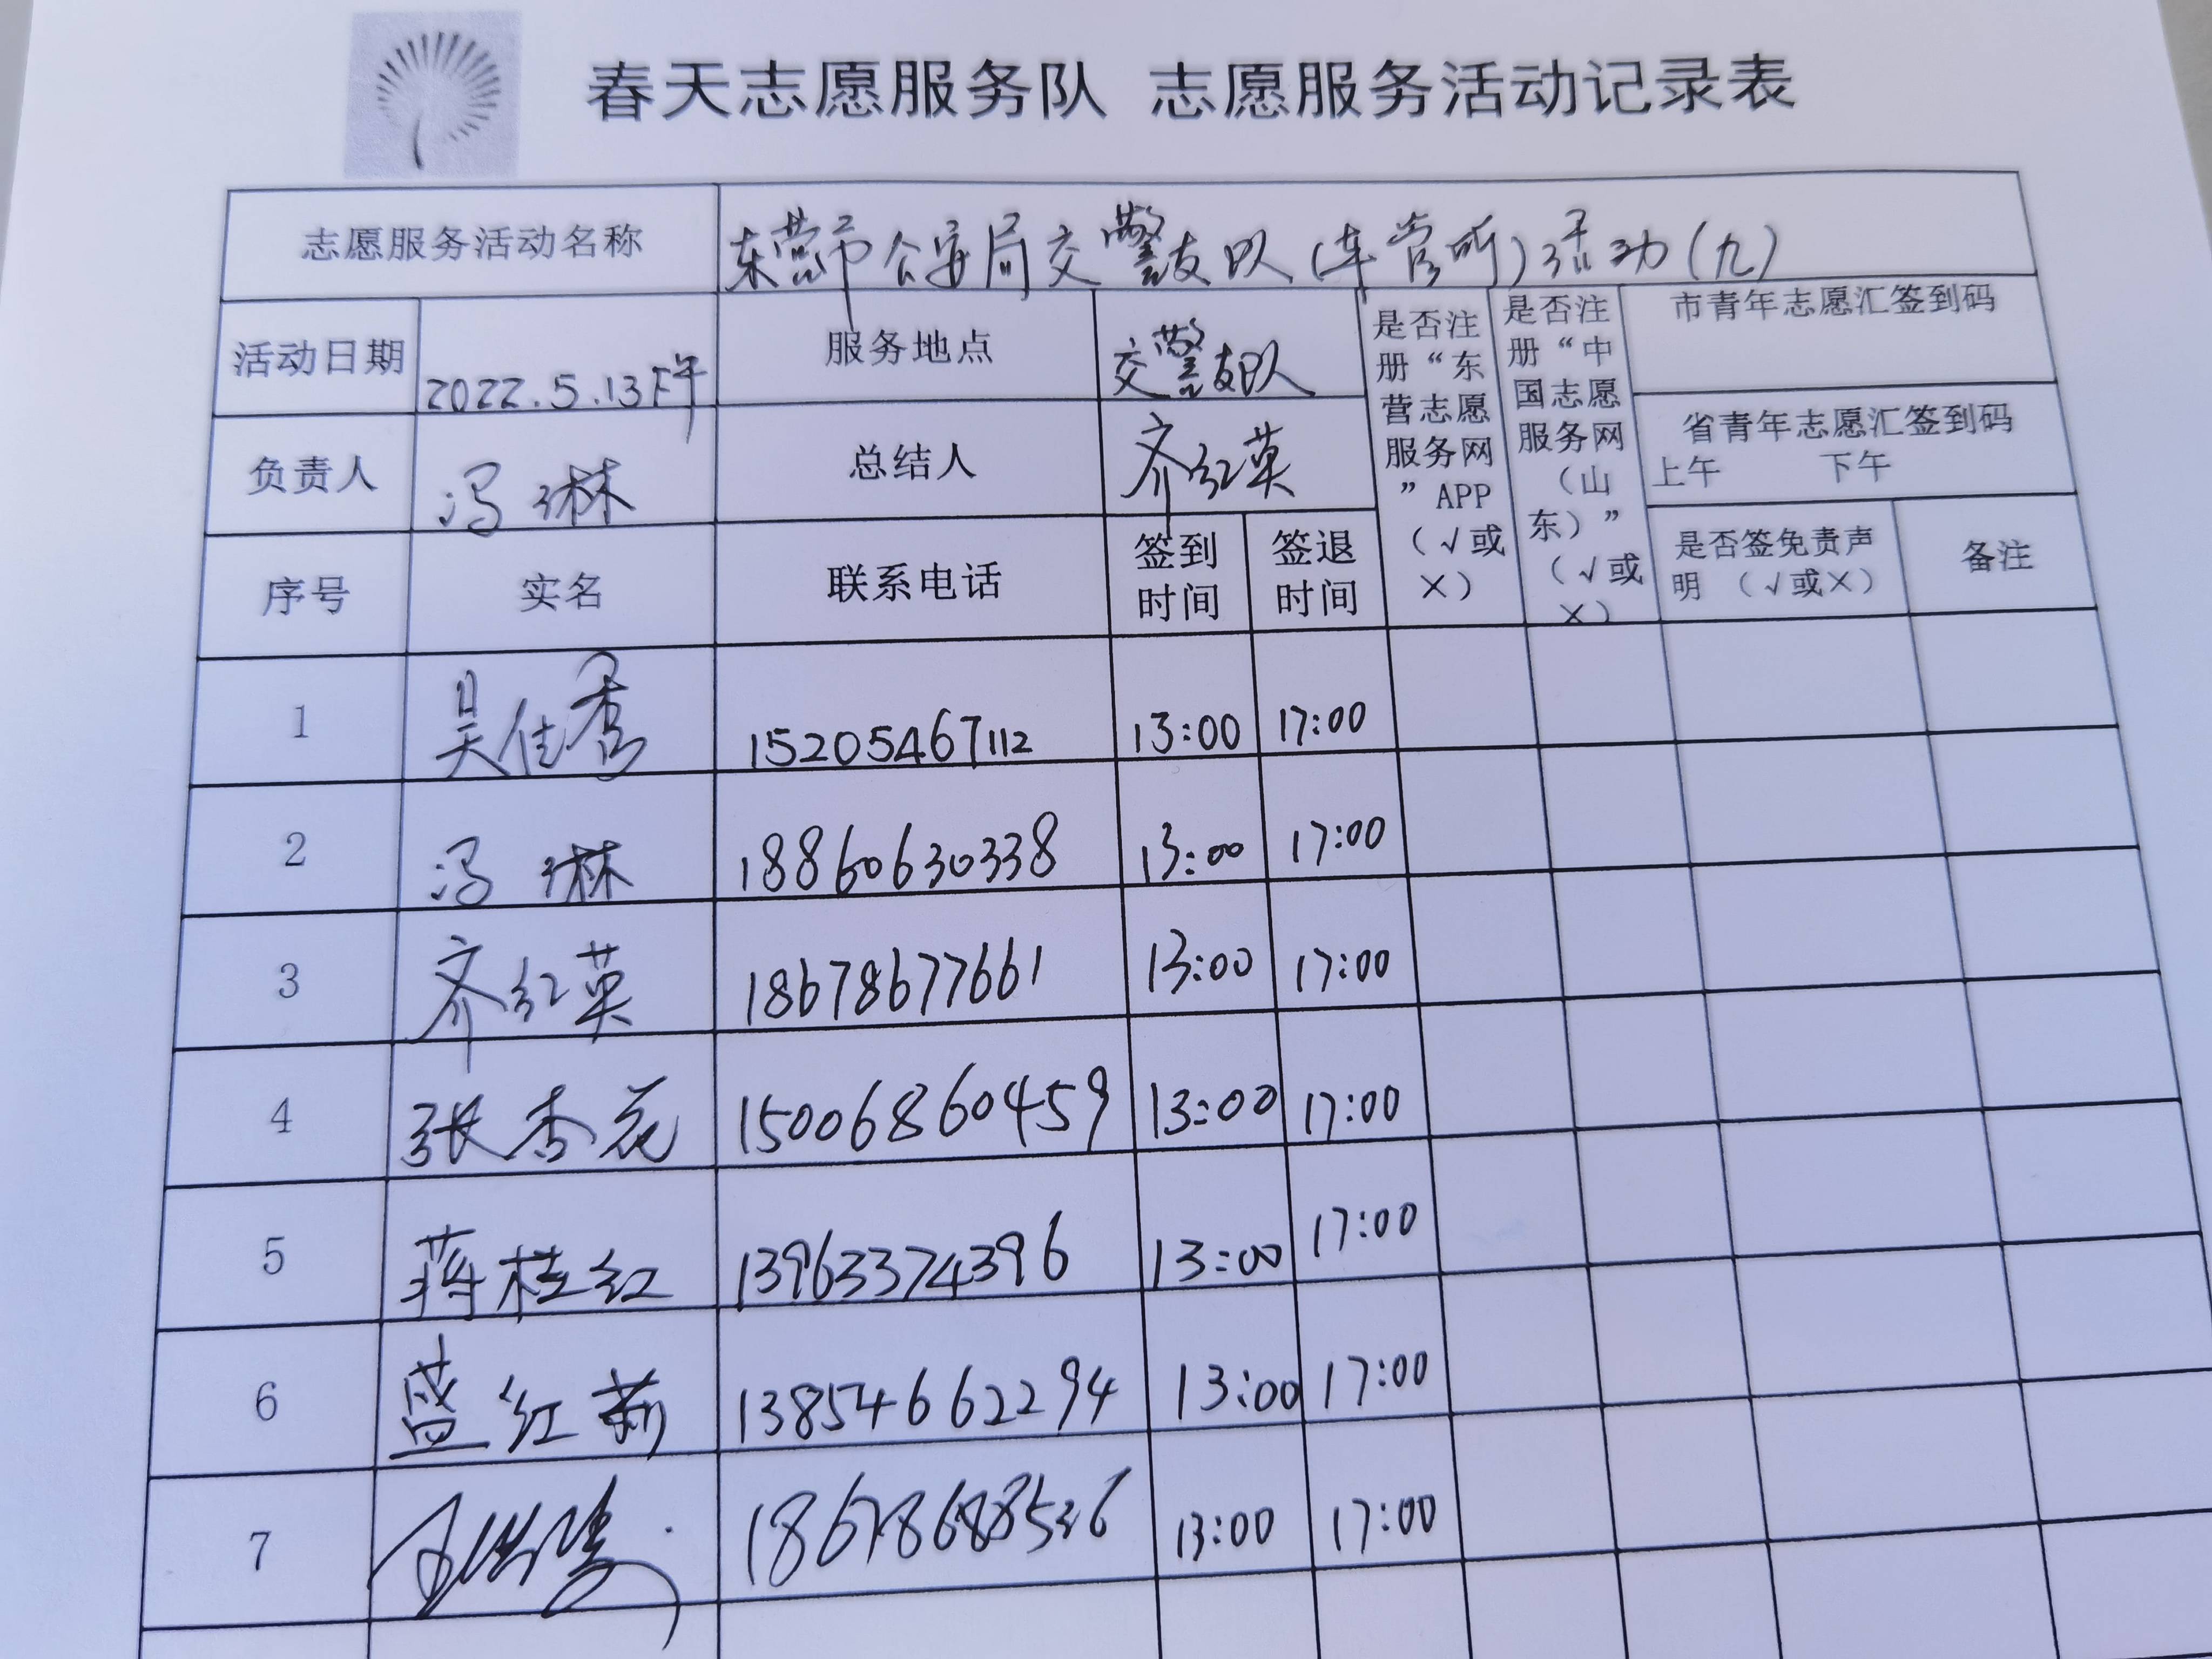 春天志愿服务队 志愿服务活动记录表
志愿服务活动名称 东营市公安局交警支队(车管所)活动(九)
活动日期 2022.5.13下午 服务地点 交警支队
是否注册“东营志愿服务网”APP(√或×)
是否注册“中国志愿服务网(山东)”(√或×)
市青年志愿汇签到码
省青年志愿汇签到码
上午 下午
负责人 冯琳 总结人 齐红英
序号 实名 联系电话 签到时间 签退时间 是否签免责声明 (√或×) 备注
1 吴佳秀 15205467112 13:00 17:00
2 冯琳 18860630338 13:00 17:00
3 齐红英 18678677661 13:00 17:00
4 张杏花 15006860459 13:00 17:00
5 蒋桂红 13963374396 13:00 17:00
6 盛红莉 13854662294 13:00 17:00
7 13:00 17:00